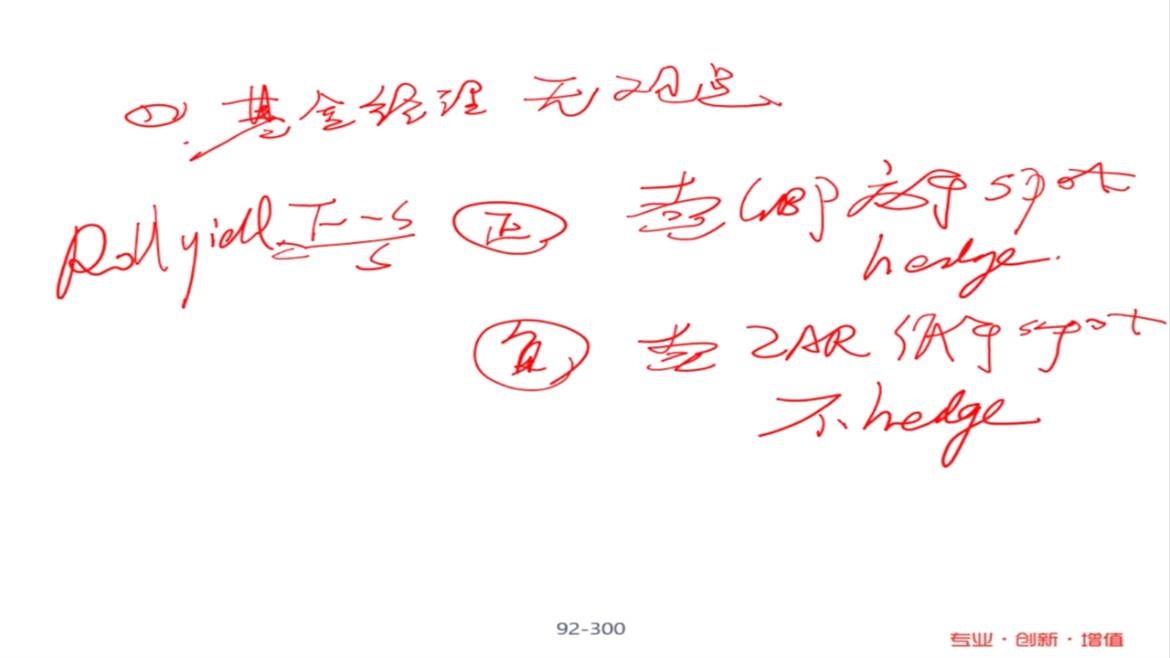 ①. 基金经理 无观点
Roll yield = F-S / S 正 卖 GBP 高于 spot
hedge.
负 卖 ZAR 低于 spot
不 hedge
92-300
专业·创新·增值